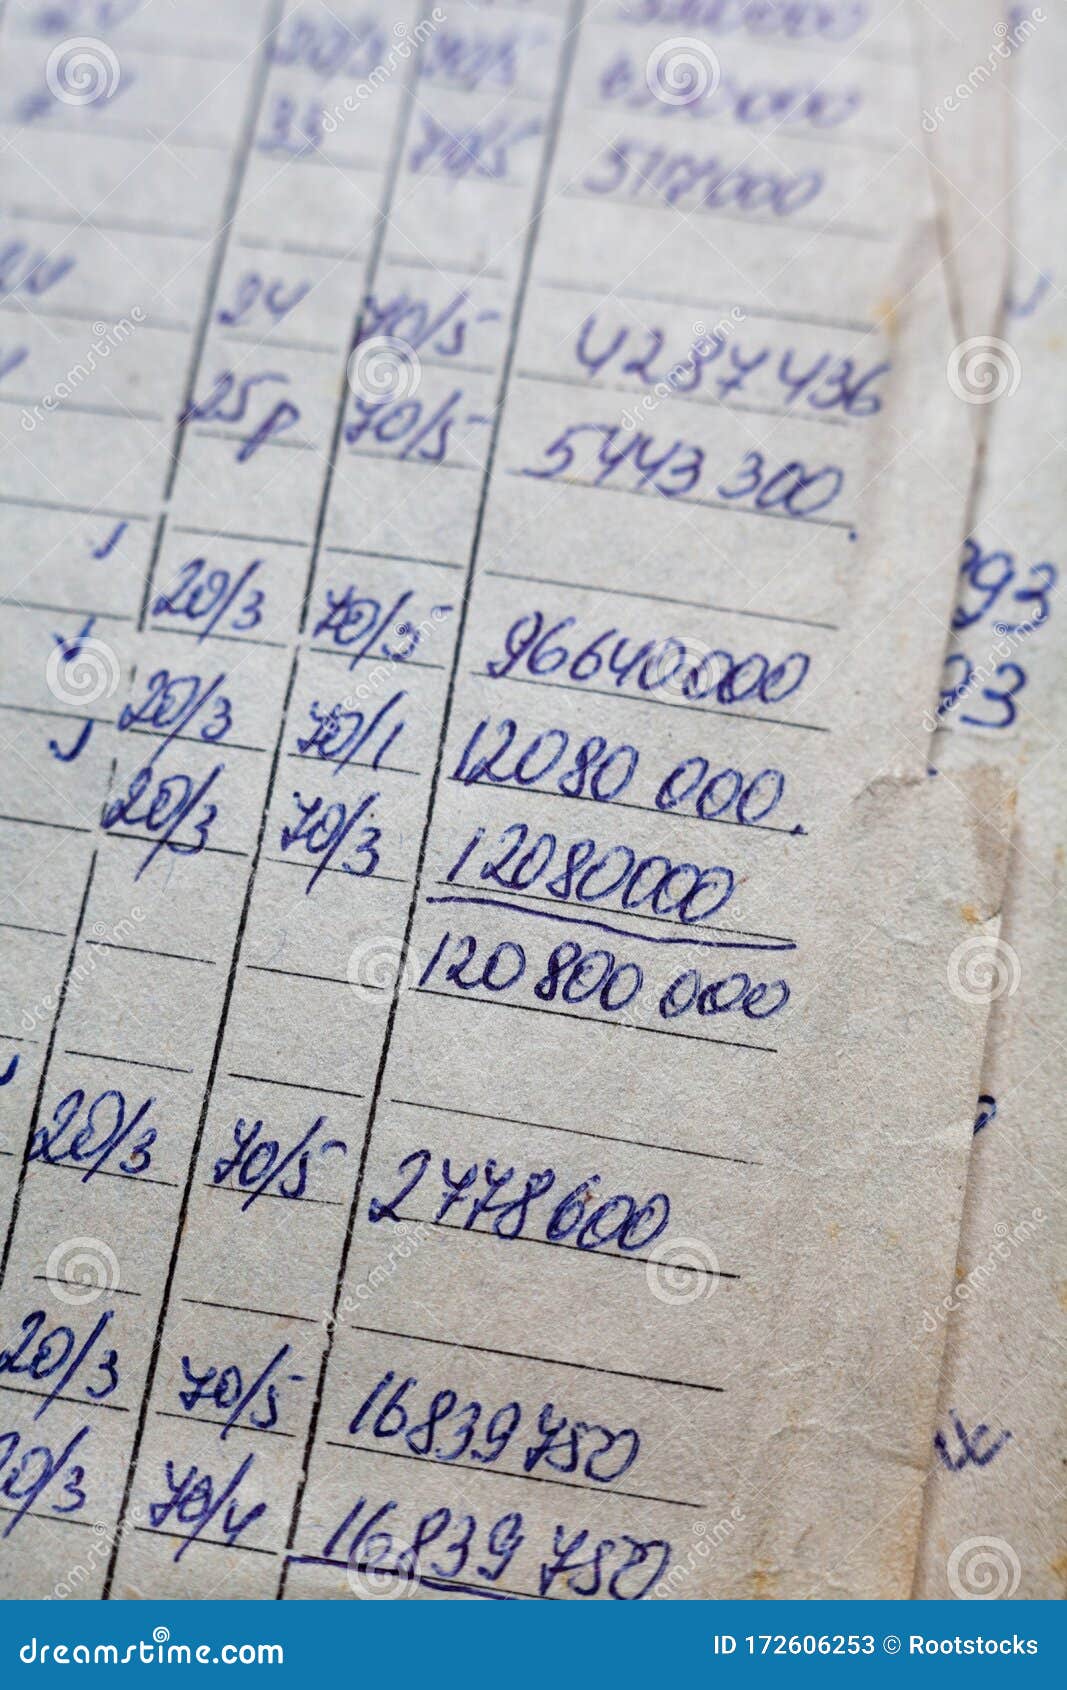 20/3 70/5
33 70/5 5117000
24 70/5 4237436
25р 70/5 5443 300
20/3 70/5 96640000
993
20/3 70/1 12080 000.
93
20/3 70/3 12080000
120 800 000
20/3 70/5 2778600
20/3 70/5 16839 750
20/3 70/4 16839 750
dreamstime.com
ID 172606253 © Rootstocks